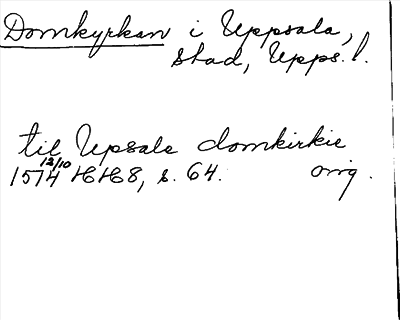 Domkyrkan i Uppsala,
stad, Upps. l.
til Upsale domkirkie
1574 12/10 HH8, s. 64. orig.